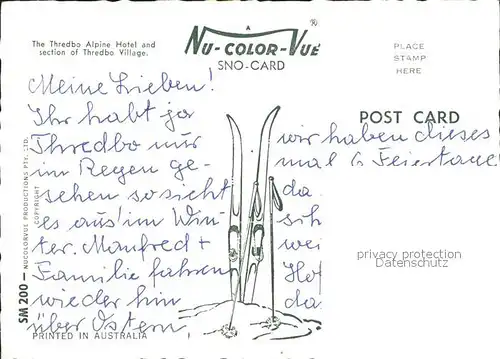 The Thredbo Alpine Hotel and
section of Thredbo Village.
NU-COLOR-VUE ®
SNO-CARD
PLACE
STAMP
HERE
POST CARD
Meine Lieben!
Ihr habt ja
Thredbo nur
im Regen ge-
sehen so sieht
es aus im Win-
ter. Manfred +
Familie fahren
wieder hin
über Ostern,
wir haben dieses
mal 6 Feiertage
da
sih
wei
Hof
da
privacy protection
Datenschutz
SM 200 — NUCOLORVUE PRODUCTIONS PTY. LTD.
COPYRIGHT
PRINTED IN AUSTRALIA